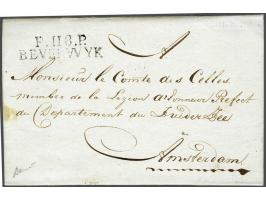 P.118.P.
BEVERWYK
A
Monsieur le Comte des Celles
membre de la Legion d'honneur Prefect
du Departement du Zuider Zee
à
Amsterdam